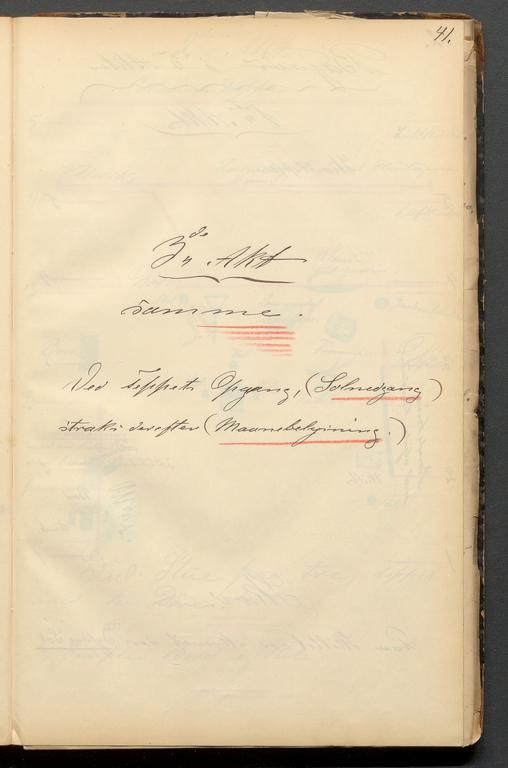 41.
3de Akt
samme.
Ved Teppets Opgang, (Solnedgang)
straks derefter (Maanebelysning.)